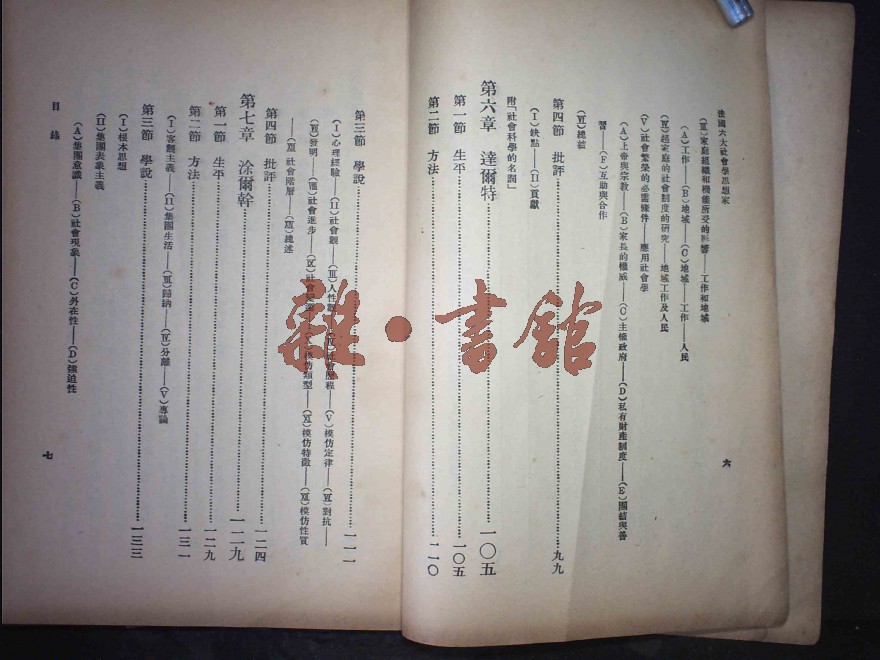 法國六大社會學思想家
六
(Ⅲ)家庭組織和機能所受的影響——工作和地域
(A)工作——(B)地域——(C)地域——工作——人民
(Ⅳ)超家庭的社會制度的研究——地域工作及人民
(Ⅴ)社會繁榮的必需條件——應用社會學
(A)上帝與宗教——(B)家長的權威——(C)主權政府——(D)私有財產制度——(E)團結與善
習——(F)互助與合作
(Ⅵ)總結
第四節 批評 九九
(Ⅰ)缺點——(Ⅱ)貢獻
附「社會科學的名詞」
第六章 達爾特 一〇五
第一節 生平 一〇五
第二節 方法 一一〇
第三節 學說 一一一
(Ⅰ)心理經驗——(Ⅱ)社會觀——(Ⅲ)人性 程——(Ⅴ)模仿定律——(Ⅵ)對抗——
(Ⅶ)發明——(Ⅷ)社會進步——(Ⅸ)社會 模仿類型——(Ⅺ)模仿特徵——(Ⅻ)模仿性質
——社會階層——總述
第四節 批評 一二四
第七章 涂爾幹 一二九
第一節 生平 一二九
第二節 方法 一三一
(Ⅰ)客觀主義——(Ⅱ)集團生活——(Ⅲ)歸納——(Ⅳ)分離——(Ⅴ)專論
第三節 學說 一三三
(Ⅰ)根本思想
(Ⅱ)集團表象主義
(A)集團意識——(B)社會現象——(C)外在性——(D)強迫性
目錄
七
雜·書館